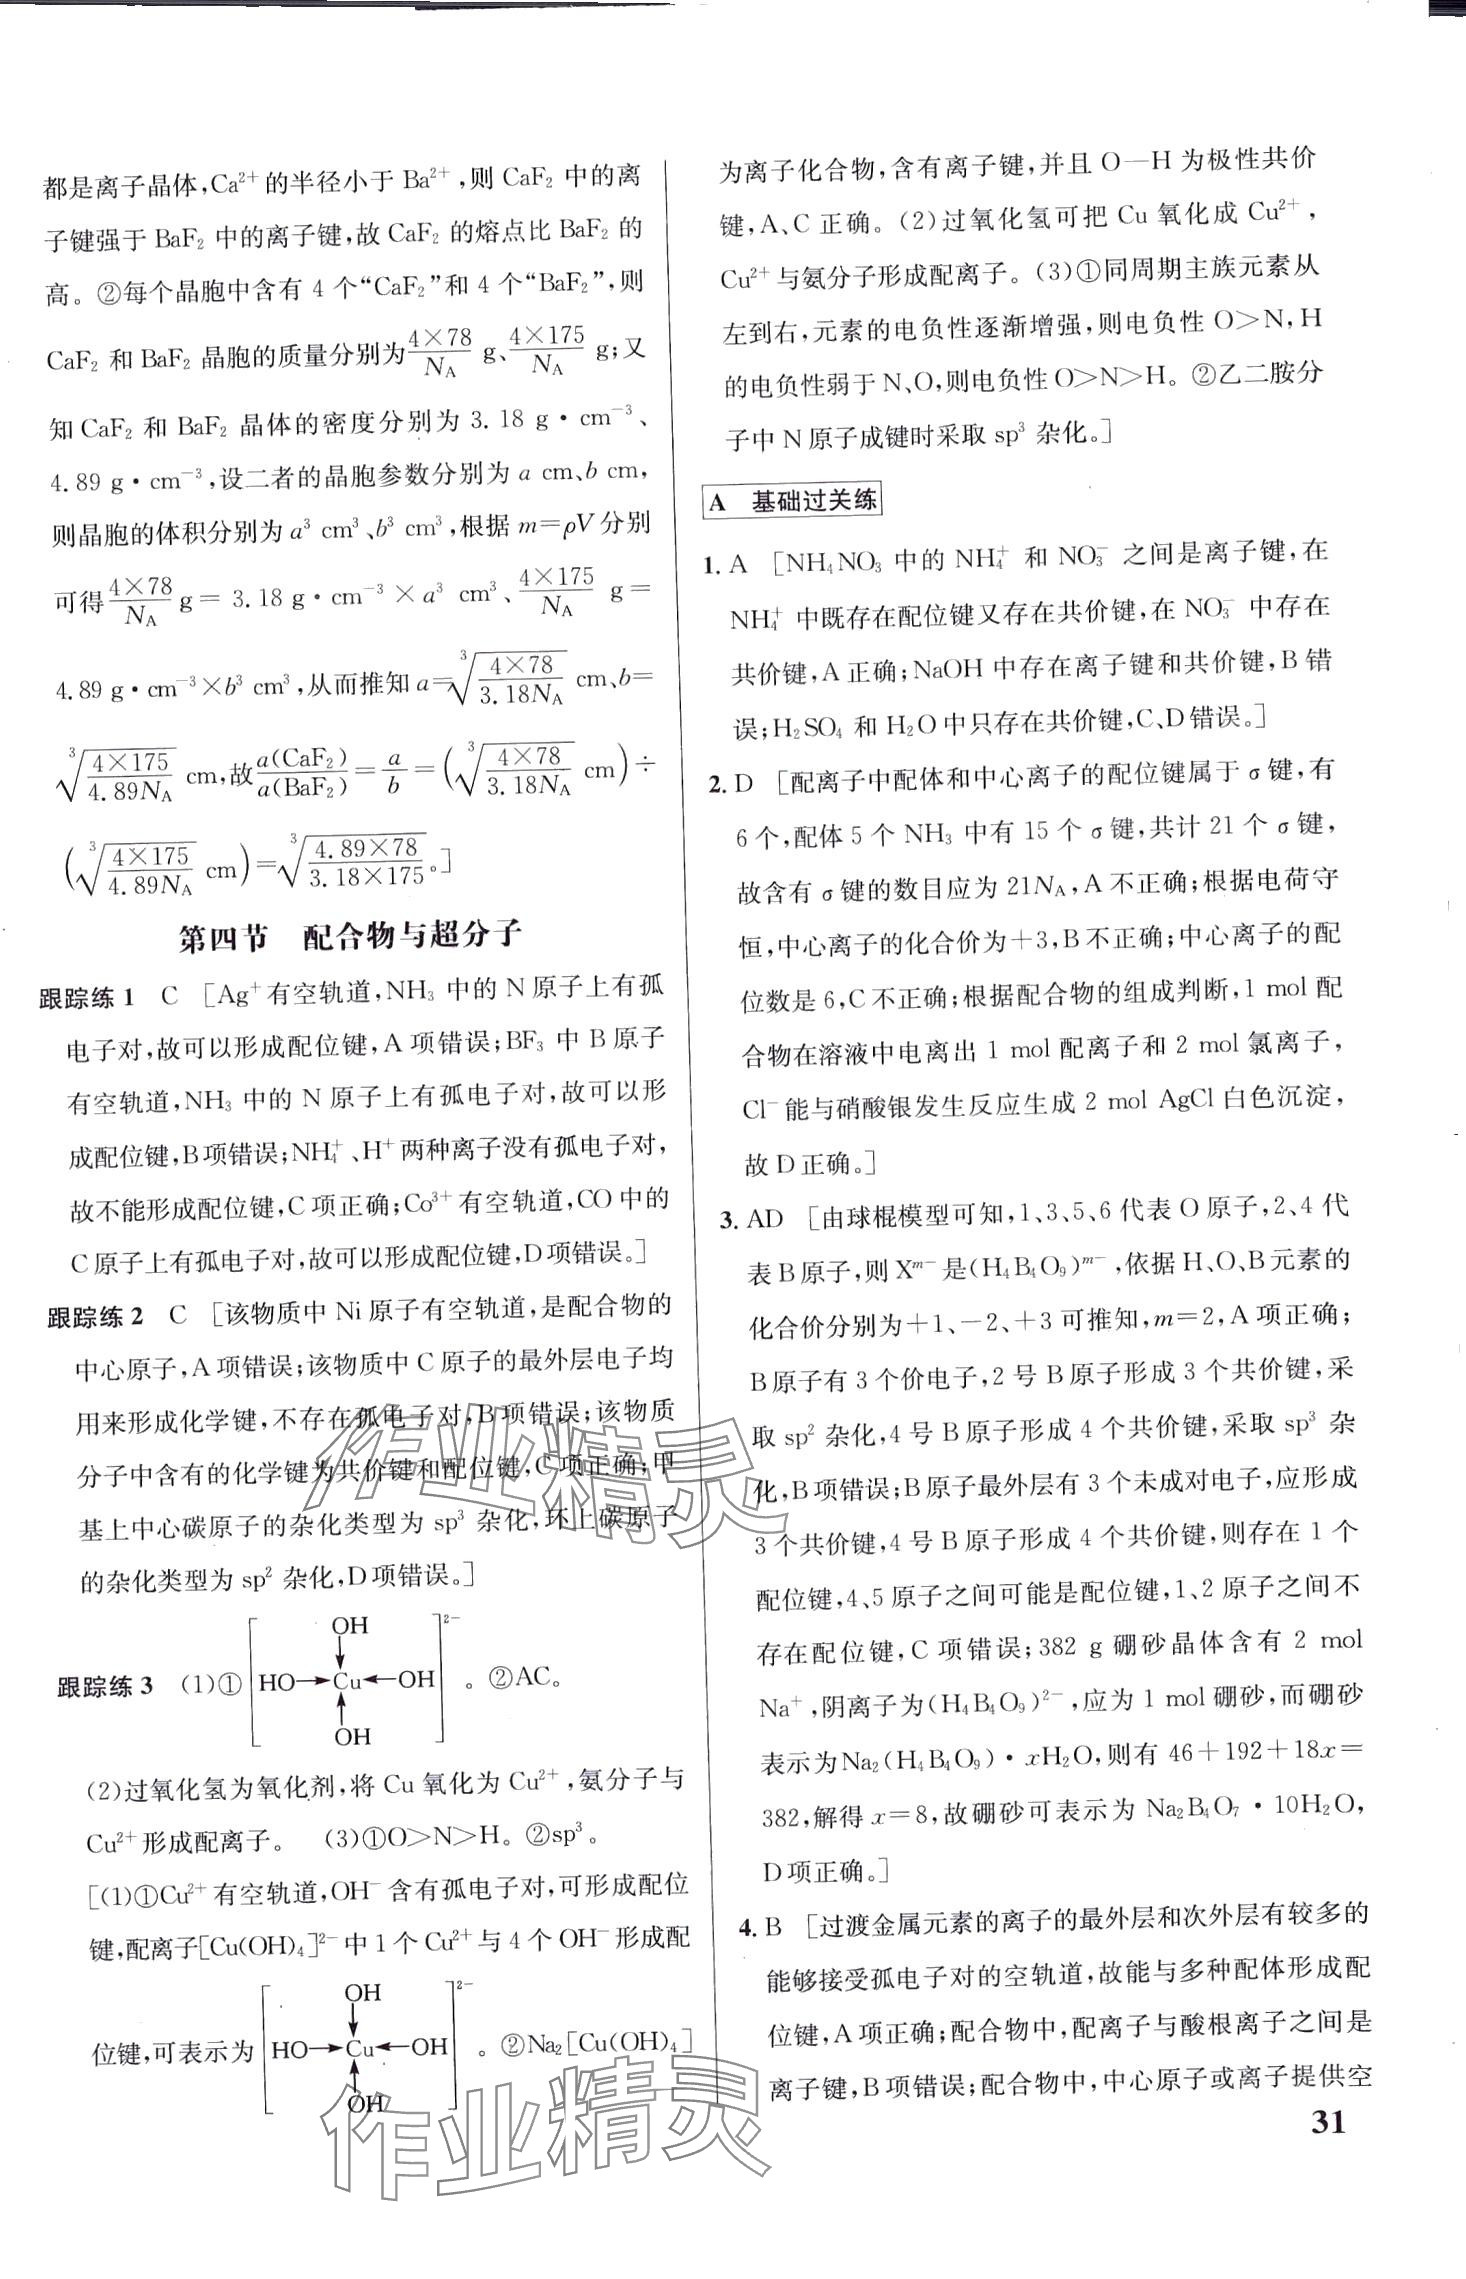 都是离子晶体,Ca²⁺的半径小于Ba²⁺,则CaF₂中的离
子键强于BaF₂中的离子键,故CaF₂的熔点比BaF₂的
高。②每个晶胞中含有4个“CaF₂”和4个“BaF₂”,则
CaF₂和BaF₂晶胞的质量分别为(4×78)/N_A g、(4×175)/N_A g;又
知CaF₂和BaF₂晶体的密度分别为3.18 g·cm⁻³、
4.89 g·cm⁻³,设二者的晶胞参数分别为a cm、b cm,
则晶胞的体积分别为a³ cm³、b³ cm³,根据m=ρV分别
可得(4×78)/N_A g=3.18 g·cm⁻³×a³ cm³、(4×175)/N_A g=
4.89 g·cm⁻³×b³ cm³,从而推知a=∛((4×78)/(3.18N_A)) cm、b=
∛((4×175)/(4.89N_A)) cm,故a(CaF₂)/a(BaF₂)=a/b=(∛((4×78)/(3.18N_A)) cm)÷
(∛((4×175)/(4.89N_A)) cm)=∛((4.89×78)/(3.18×175))。]
第四节 配合物与超分子
跟踪练1 C [Ag⁺有空轨道,NH₃中的N原子上有孤
电子对,故可以形成配位键,A项错误;BF₃中B原子
有空轨道,NH₃中的N原子上有孤电子对,故可以形
成配位键,B项错误;NH₄⁺、H⁺两种离子没有孤电子对,
故不能形成配位键,C项正确;Co³⁺有空轨道,CO中的
C原子上有孤电子对,故可以形成配位键,D项错误。]
跟踪练2 C [该物质中Ni原子有空轨道,是配合物的
中心原子,A项错误;该物质中C原子的最外层电子均
用来形成化学键,不存在孤电子对,B项错误;该物质
分子中含有的化学键为共价键和配位键,C项正确;甲
基上中心碳原子的杂化类型为sp³杂化,环上碳原子
的杂化类型为sp²杂化,D项错误。]
OH
跟踪练3 (1)①[HO→Cu←OH]²⁻。②AC。
OH
(2)过氧化氢为氧化剂,将Cu氧化为Cu²⁺,氨分子与
Cu²⁺形成配离子。 (3)①O>N>H。②sp³。
[(1)①Cu²⁺有空轨道,OH⁻含有孤电子对,可形成配位
键,配离子[Cu(OH)₄]²⁻中1个Cu²⁺与4个OH⁻形成配
OH
位键,可表示为[HO→Cu←OH]²⁻。②Na₂[Cu(OH)₄]
OH
为离子化合物,含有离子键,并且O—H为极性共价
键,A、C正确。(2)过氧化氢可把Cu氧化成Cu²⁺,
Cu²⁺与氨分子形成配离子。(3)①同周期主族元素从
左到右,元素的电负性逐渐增强,则电负性O>N,H
的电负性弱于N、O,则电负性O>N>H。②乙二胺分
子中N原子成键时采取sp³杂化。]
A 基础过关练
1. A [NH₄NO₃中的NH₄⁺和NO₃⁻之间是离子键,在
NH₄⁺中既存在配位键又存在共价键,在NO₃⁻中存在
共价键,A正确;NaOH中存在离子键和共价键,B错
误;H₂SO₄和H₂O中只存在共价键,C、D错误。]
2. D [配离子中配体和中心离子的配位键属于σ键,有
6个,配体5个NH₃中有15个σ键,共计21个σ键,
故含有σ键的数目应为21N_A,A不正确;根据电荷守
恒,中心离子的化合价为+3,B不正确;中心离子的配
位数是6,C不正确;根据配合物的组成判断,1 mol配
合物在溶液中电离出1 mol配离子和2 mol氯离子,
Cl⁻能与硝酸银发生反应生成2 mol AgCl白色沉淀,
故D正确。]
3. AD [由球棍模型可知,1、3、5、6代表O原子,2、4代
表B原子,则Xᵐ⁻是(H₄B₄O₉)ᵐ⁻,依据H、O、B元素的
化合价分别为+1、-2、+3可推知,m=2,A项正确;
B原子有3个价电子,2号B原子形成3个共价键,采
取sp²杂化,4号B原子形成4个共价键,采取sp³杂
化,B项错误;B原子最外层有3个未成对电子,应形成
3个共价键,4号B原子形成4个共价键,则存在1个
配位键,4、5原子之间可能是配位键,1、2原子之间不
存在配位键,C项错误;382 g硼砂晶体含有2 mol
Na⁺,阴离子为(H₄B₄O₉)²⁻,应为1 mol硼砂,而硼砂
表示为Na₂(H₄B₄O₉)·xH₂O,则有46+192+18x=
382,解得x=8,故硼砂可表示为Na₂B₄O₇·10H₂O,
D项正确。]
4. B [过渡金属元素的离子的最外层和次外层有较多的
能够接受孤电子对的空轨道,故能与多种配体形成配
位键,A项正确;配合物中,配离子与酸根离子之间是
离子键,B项错误;配合物中,中心原子或离子提供空
31
作业精灵
作业精灵